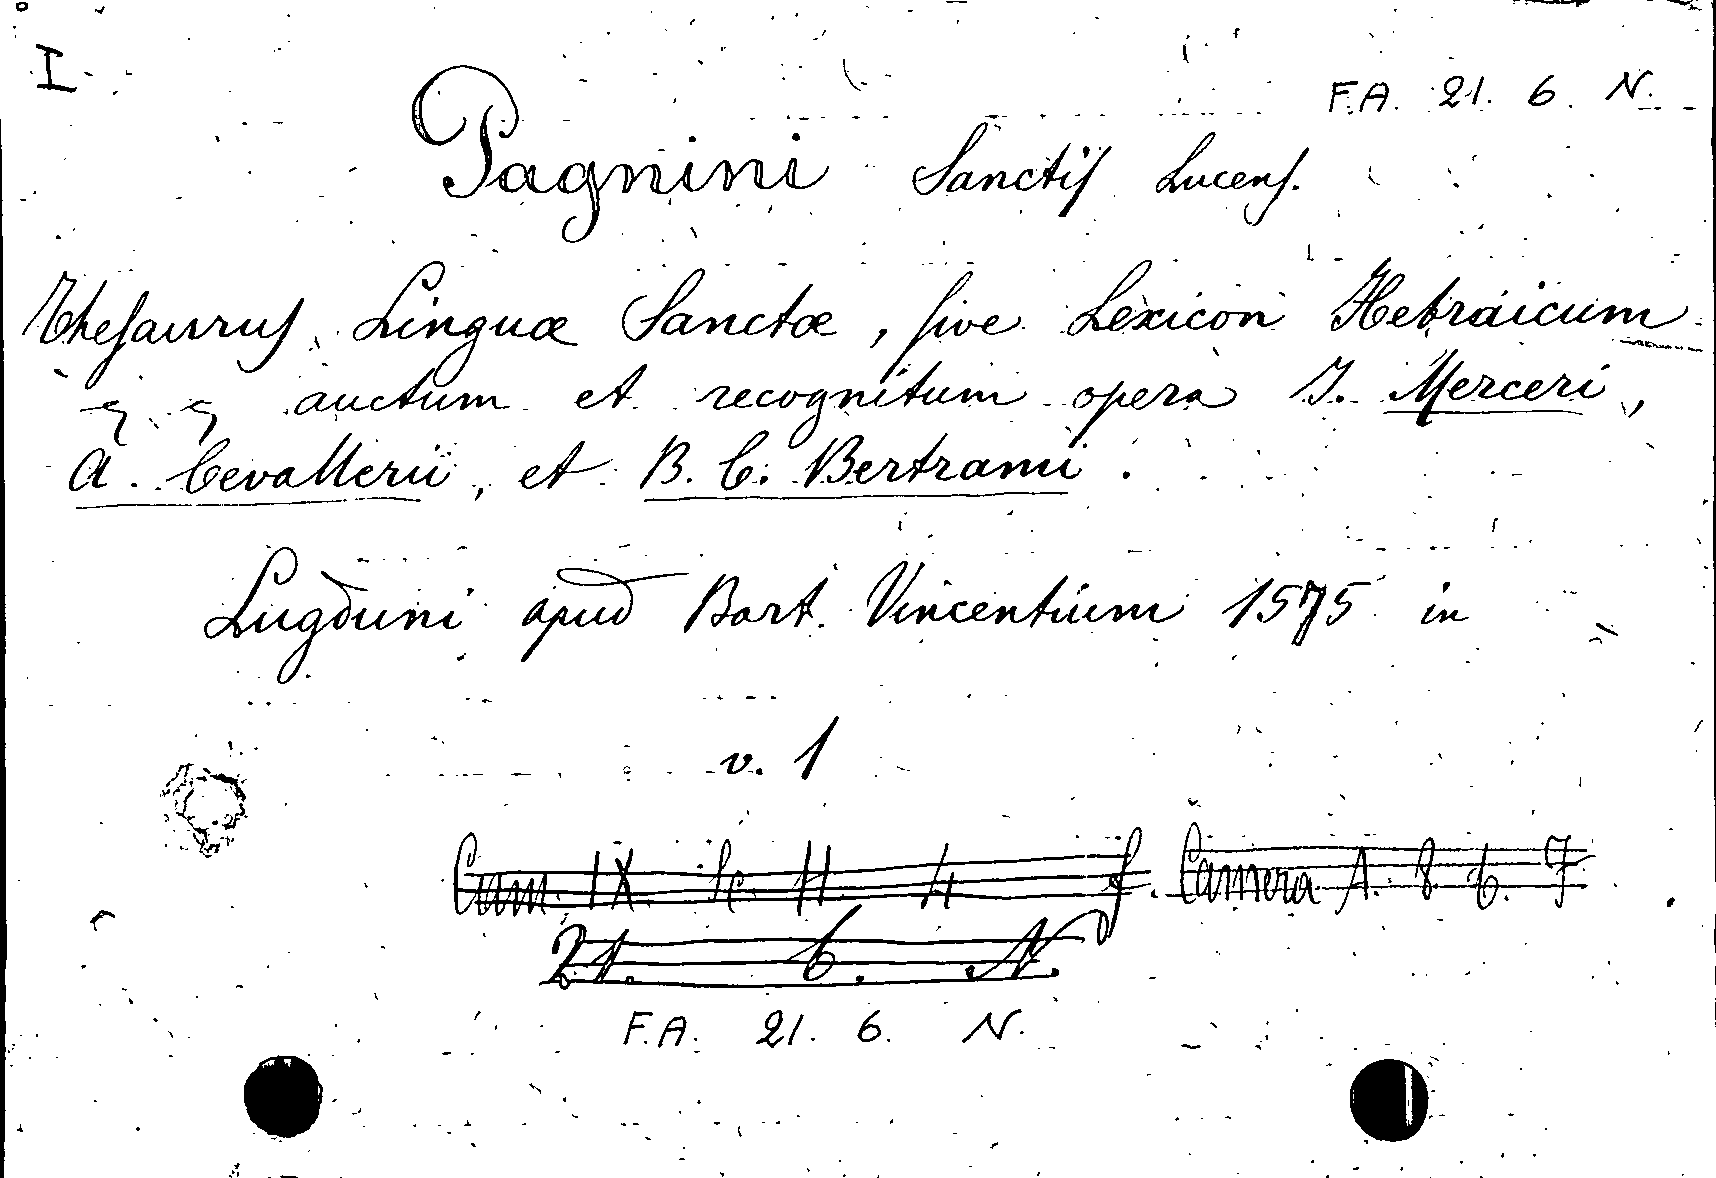 I
F.A. 21. 6. N.
Pagnini Sanctiſ Lucenſ.
Theſauruſ Linguæ Sanctæ, ſive Lexicon Hebraicum
auctum et recognitum opera I. Merceri,
A. Cevallerii, et B. C. Bertrami.
Lugduni apud Bart. Vincentium 1575 in
v. 1
Cam. IX. Sc. H. 4 f. Camera A. 8. 6. 7
21. 6. N.
F.A. 21. 6. N.